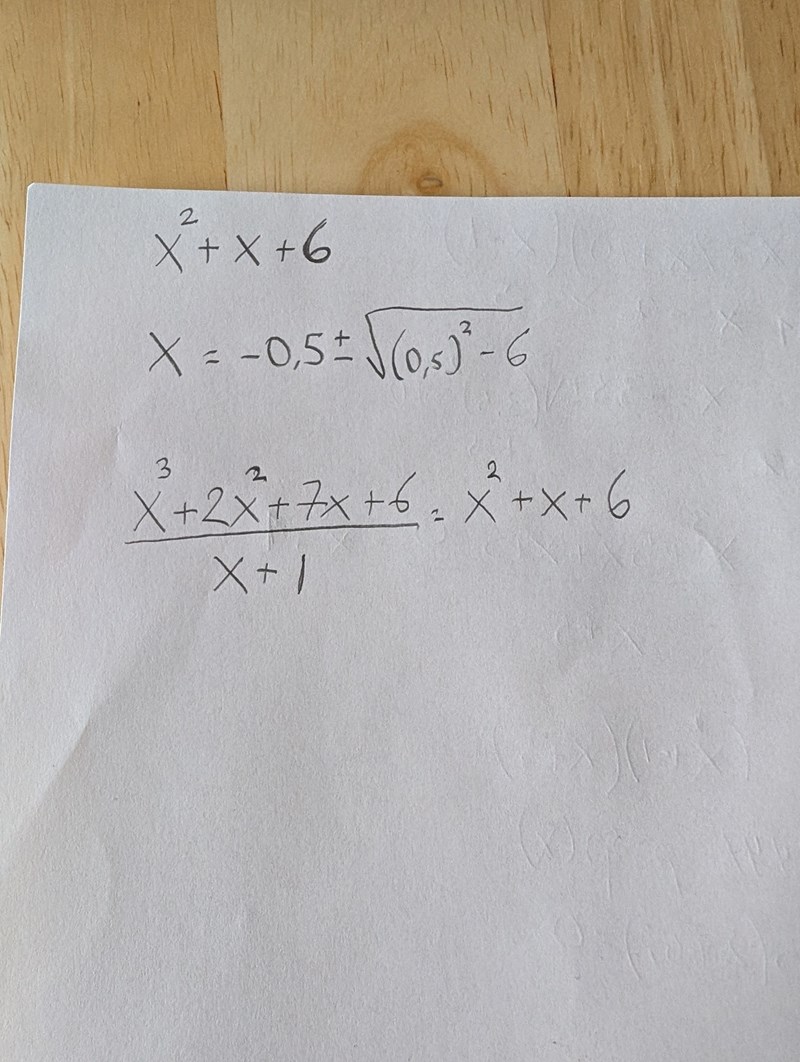 x² + x + 6
x = -0,5 ± √((0,5)² - 6)
(x³ + 2x² + 7x + 6) / (x + 1) = x² + x + 6